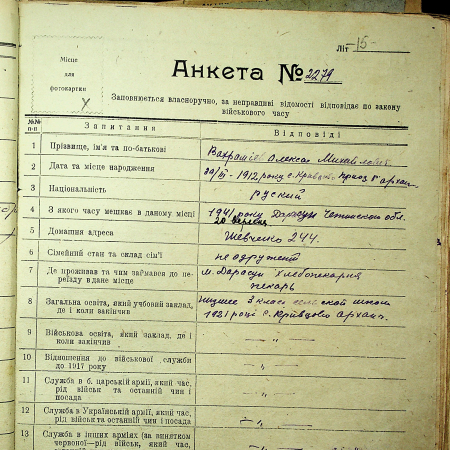 Літ 15-
Місце
для
фотокартки
Анкета № 2279
Заповнюється власноручно, за неправдиві відомості відповідає по закону
військового часу
№№
п-п
Запитання
Відповіді
1 Прізвище, ім'я та по-батькові
Олекса
2 Дата та місце народження
20/III-1912 року с.
3 Національність
руский
4 З якого часу мешкає в даному місті
1941 року
5 Домашня адреса
Шевченко 244.
6 Сімейний стан та склад сім'ї
не одружит
7 Де проживав та чим займався до пе-
реїзду в дане місце
м. Дарасун Хлебопекарня
пекарь
8 Загальна освіта, який учбовий заклад,
де і коли закінчив
3 класа школи
1921 році с.
9 Військова освіта, який заклад, де і
коли закінчив
— „ —
10 Відношення до військової служби
до 1917 року
— „ —
11 Служба в б. царській армії, який час,
рід військ та останній чин і
посада
— „ —
12 Служба в Українській армії, який час,
рід військ та останній чин і посада
— „ —
13 Служба в інших арміях (за винятком
червоної—рід військ, який час,